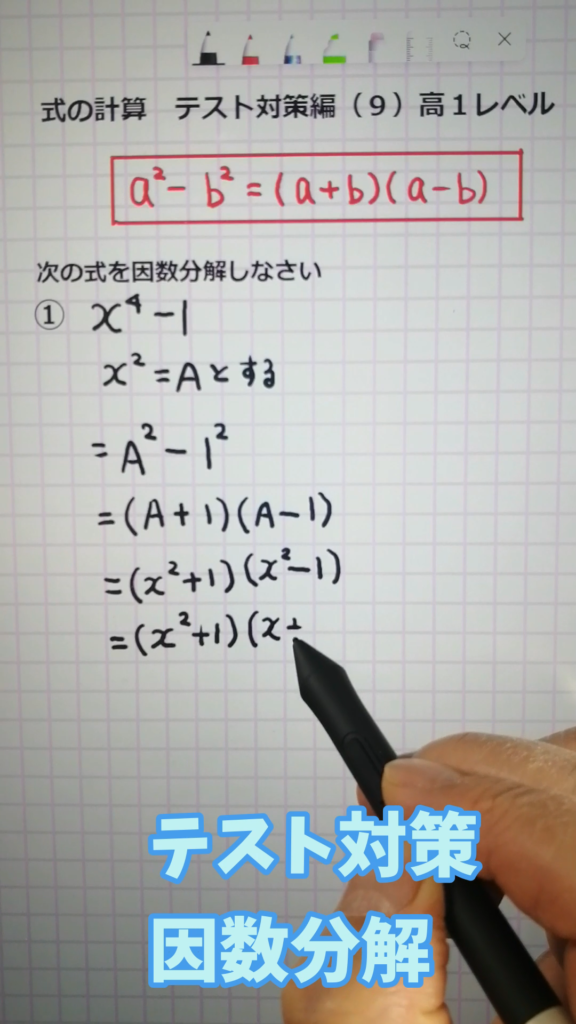 式の計算 テスト対策編（９）高１レベル
a² - b² = (a+b)(a-b)
次の式を因数分解しなさい
① x⁴ - 1
x² = A とする
= A² - 1²
= (A+1)(A-1)
= (x²+1)(x²-1)
= (x²+1)(x+
テスト対策
因数分解